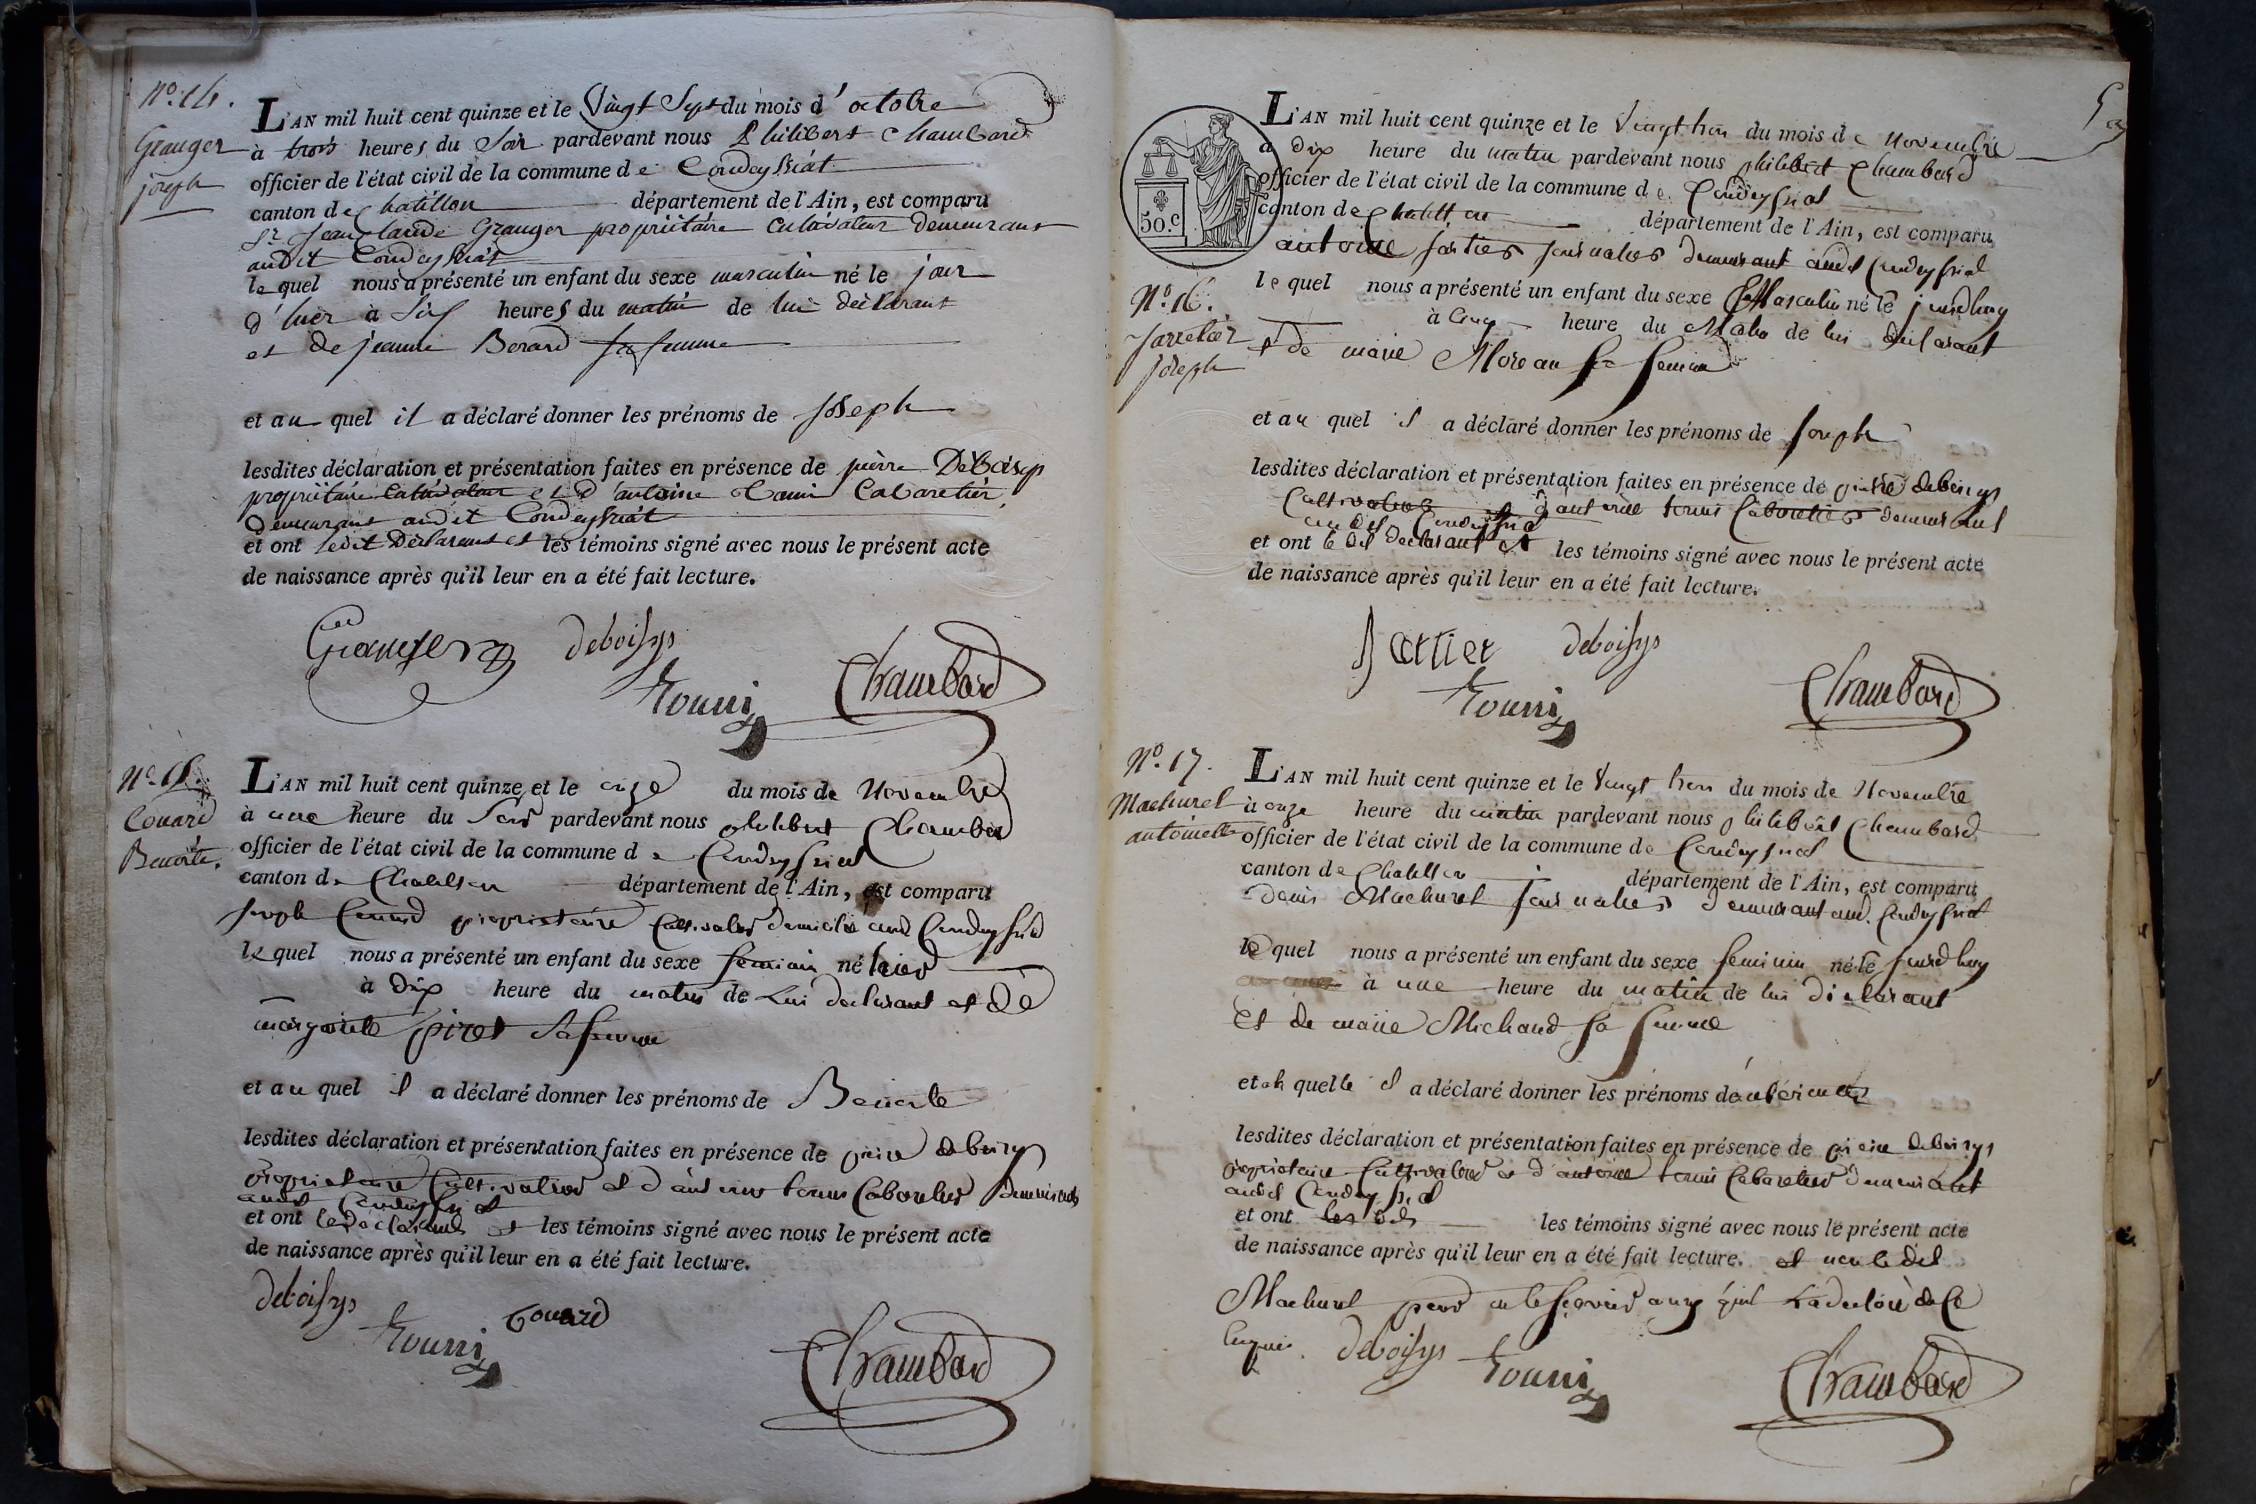 N.o 14.
Granger
joseph
L'AN mil huit cent quinze et le Vingt Sept du mois d'octobre
à trois heures du Soir pardevant nous Philibert Chambard
officier de l'état civil de la commune de Condeyssiat
canton de Chatillon département de l'Ain, est comparu
Sr. Jean Claude Granger propriétaire Cultivateur Demeurant
audit Condeyssiat
lequel nous a présenté un enfant du sexe masculin né le jour
d'hier à Six heures du matin de lui déclarant
et de jeanne Berard sa femme
et au quel il a déclaré donner les prénoms de Joseph
lesdites déclaration et présentation faites en présence de pierre Deboisys
propriétaire Cultivateur et d'antoine Cabaretier,
demeurant audit Condeyssiat
et ont ledit Déclarant et les témoins signé avec nous le présent acte
de naissance après qu'il leur en a été fait lecture.
Granger deboisys
Tourni Chambard
N.o 15.
Couard
Benoite.
L'AN mil huit cent quinze et le onze du mois de Novembre
à une heure du Soir pardevant nous philibert Chambard
officier de l'état civil de la commune de Condeyssiat
canton de Chatillon département de l'Ain, est comparu
joseph Couard propriétaire Cultivateur domicilié aud Condeyssiat
lequel nous a présenté un enfant du sexe feminin né hier
à dix heure du matin de Lui declarant et de
margueritte piret Sa femme
et au quel il a déclaré donner les prénoms de Benoite
lesdites déclaration et présentation faites en présence de pierre deboisys
propriétaire Cultivateur et d'antoine tourni Cabaretier demeurants
audit Condeyssiat
et ont le declarant et les témoins signé avec nous le présent acte
de naissance après qu'il leur en a été fait lecture.
deboisys
Tourni Couard
Chambard
50.c
L'AN mil huit cent quinze et le Vingt trois du mois de Novembre
à dix heure du matin pardevant nous philibert Chambard
officier de l'état civil de la commune de Condeyssiat
canton de Chatillon département de l'Ain, est comparu
antoine journalier demeurant audit Condeyssiat
N.o 16.
joseph
lequel nous a présenté un enfant du sexe Masculin né le jourdhuy
à Cinq heure du Matin de lui déclarant
et de marie Moreau sa femme
et au quel il a déclaré donner les prénoms de joseph
lesdites déclaration et présentation faites en présence de pierre deboisys
Cultivateur et d'antoine tourni Cabaretier demeurant
audit Condeyssiat
et ont le dit declarant et les témoins signé avec nous le présent acte
de naissance après qu'il leur en a été fait lecture.
Sartier deboisys
Tourni Chambard
N.o 17.
Machurel
antoinette
L'AN mil huit cent quinze et le Vingt trois du mois de Novembre
à onze heure du matin pardevant nous philibert Chambard
officier de l'état civil de la commune de Condeyssiat
canton de Chatillon département de l'Ain, est comparu
denis Machurel journalier demeurant aud. Condeyssiat
lequel nous a présenté un enfant du sexe feminin né le jourdhuy
à une heure du matin de lui déclarant
et de marie Michaud sa femme
et ah quelle il a déclaré donner les prénoms d'antoinette
lesdites déclaration et présentation faites en présence de pierre deboisys
propriétaire Cultivateur et d'antoine tourni Cabaretier demeurant
audit Condeyssiat
et ont les dits les témoins signé avec nous le présent acte
de naissance après qu'il leur en a été fait lecture. et non ledit
Machurel pour ne le scavoir ainsy quil La declaré de Ce
Enquis. deboisys Tourni
Chambard